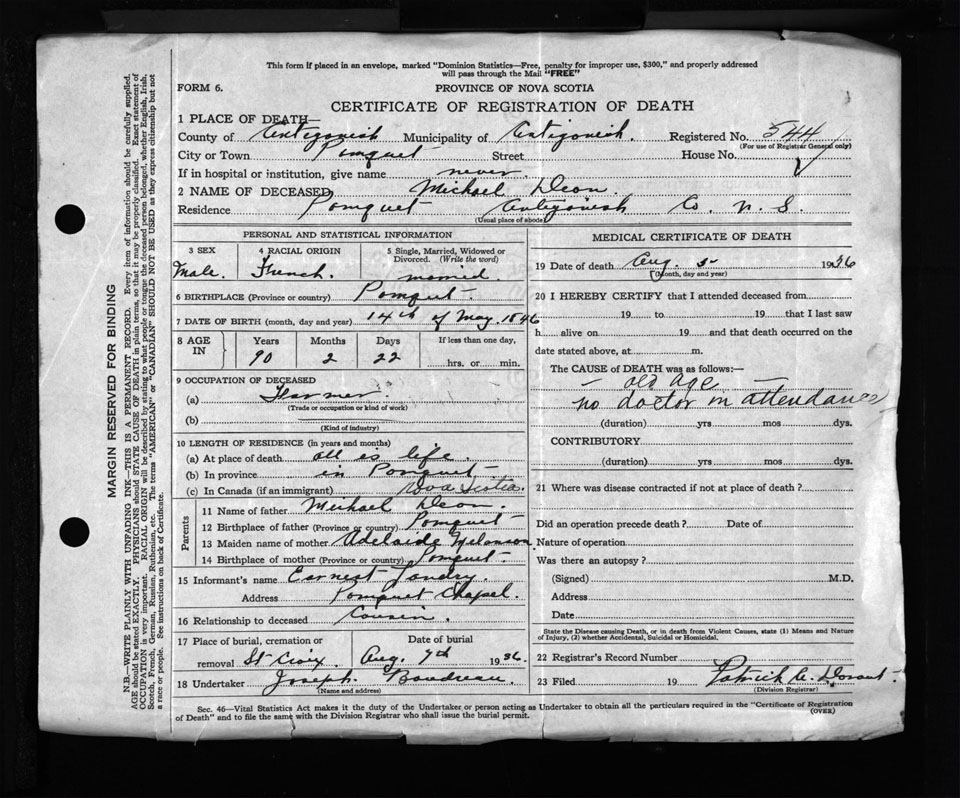 This form if placed in an envelope, marked "Dominion Statistics—Free, penalty for improper use, $300," and properly addressed
will pass through the Mail "FREE"
FORM 6. PROVINCE OF NOVA SCOTIA
CERTIFICATE OF REGISTRATION OF DEATH
1 PLACE OF DEATH—
County of Antigonish Municipality of Antigonish. Registered No. 544
(For use of Registrar General only)
City or Town Pomquet Street House No.
If in hospital or institution, give name never
2 NAME OF DECEASED Michael Deon.
Residence Pomquet Antigonish Co. N. S.
(Usual place of abode)
PERSONAL AND STATISTICAL INFORMATION
3 SEX 4 RACIAL ORIGIN 5 Single, Married, Widowed or
Divorced. (Write the word)
Male. French. married.
6 BIRTHPLACE (Province or country) Pomquet
7 DATE OF BIRTH (month, day and year) 14th of May. 1846
8 AGE IN Years Months Days If less than one day,
90 2 22 hrs. or min.
9 OCCUPATION OF DECEASED
(a) Farmer.
(Trade or occupation or kind of work)
(b)
(Kind of industry)
10 LENGTH OF RESIDENCE (in years and months)
(a) At place of death all es life.
(b) In province in Pomquet
(c) In Canada (if an immigrant) Scotia
Parents
11 Name of father Michael Deon.
12 Birthplace of father (Province or country) Pomquet
13 Maiden name of mother Adelaide
14 Birthplace of mother (Province or country) Pomquet.
15 Informant's name Earnest Landry.
Address Pomquet Chapel.
16 Relationship to deceased Cousin.
17 Place of burial, cremation or Date of burial
removal St Croix. Aug. 7th 1936.
18 Undertaker Joseph Boudreau
(Name and address)
MEDICAL CERTIFICATE OF DEATH
19 Date of death Aug. 5 1936
(Month, day and year)
20 I HEREBY CERTIFY that I attended deceased from
19 to 19 that I last saw
h alive on 19 and that death occurred on the
date stated above, at m.
The CAUSE of DEATH was as follows:—
— old age —
no doctor in attendance
(duration) yrs mos dys.
CONTRIBUTORY
(duration) yrs mos dys.
21 Where was disease contracted if not at place of death?
Did an operation precede death? Date of
Nature of operation
Was there an autopsy?
(Signed) M.D.
Address
Date
State the Disease causing Death, or in death from Violent Causes, state (1) Means and Nature
of Injury, (2) whether Accidental, Suicidal or Homicidal.
22 Registrar's Record Number
23 Filed 19 Patrick A.
(Division Registrar)
Sec. 46—Vital Statistics Act makes it the duty of the Undertaker or person acting as Undertaker to obtain all the particulars required in the "Certificate of Registration
of Death" and to file the same with the Division Registrar who shall issue the burial permit. (OVER)
MARGIN RESERVED FOR BINDING
N.B.—WRITE PLAINLY WITH UNFADING INK—THIS IS A PERMANENT RECORD. Every item of information should be carefully supplied.
AGE should be stated EXACTLY. PHYSICIANS should STATE CAUSE OF DEATH in plain terms, so that it may be properly classified. Exact statement of
OCCUPATION is very important. RACIAL ORIGIN will be described by stating to what people or tongue the deceased person belonged, whether English, Irish,
Scotch, French, German, Russian, Ruthenian, etc. The terms "AMERICAN" or "CANADIAN" SHOULD NOT BE USED as they express citizenship but not
a race or people. See instructions on back of Certificate.